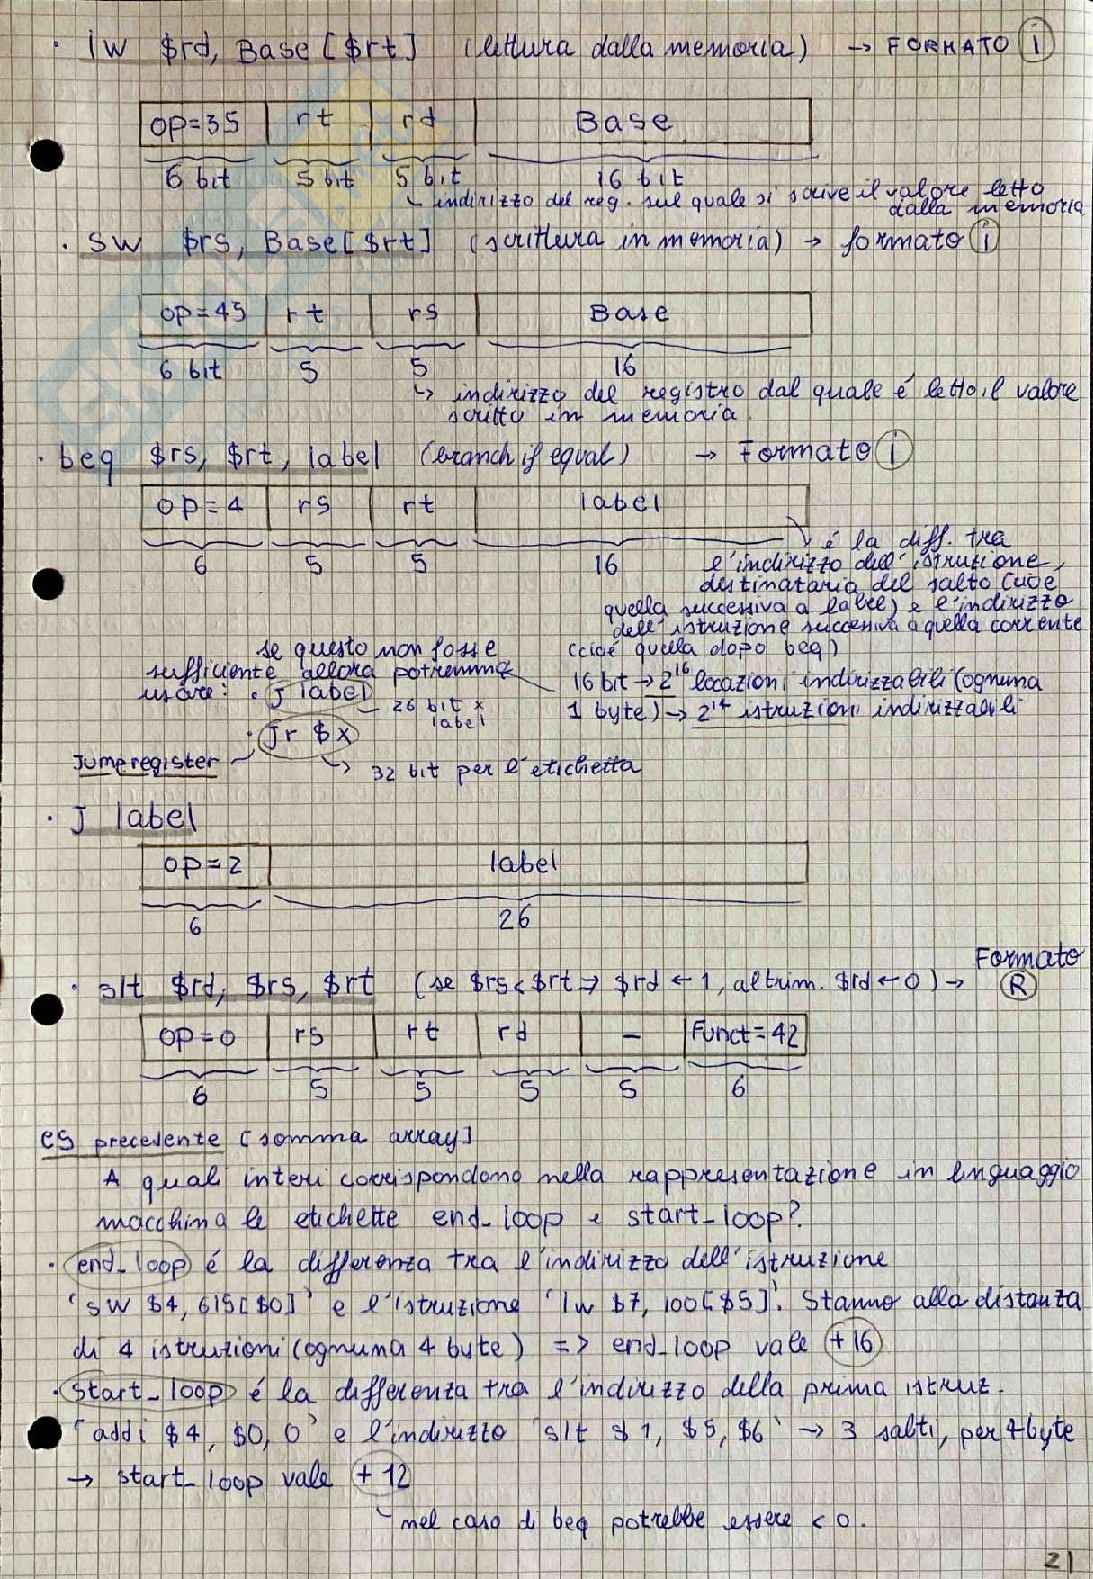 · lw $rd, Base [$rt] (lettura dalla memoria) → FORMATO i
op=35 rt rd Base
6 bit 5 bit 5 bit 16 bit
indirizzo del reg. sul quale si scrive il valore letto
dalla memoria
· sw $rs, Base[$rt] (scrittura in memoria) → formato i
op=43 rt rs Base
6 bit 5 5 16
↳ indirizzo del registro dal quale é letto il valore
scritto in memoria.
· beq $rs, $rt, label (branch if equal) → Formato i
op=4 rs rt label
6 5 5 16
é la diff. tra
l'indirizzo dell'istruzione,
destinataria del salto (cioé
quella successiva a label) e l'indirizzo
dell'istruzione successiva a quella corrente
(cioé quella dopo beq)
se questo non fosse
sufficiente allora potremmo
usare: · j label
26 bit x
label
16 bit → 2^16 locazioni indirizzabili (ognuna
1 byte) → 2^14 istruzioni indirizzabili
· jr $x
Jump register
↳ 32 bit per l'etichetta
· J label
op=2 label
6 26
· slt $rd, $rs, $rt (se $rs<$rt ⇒ $rd ← 1, altrim. $rd ← 0) → Formato R
op=0 rs rt rd – Funct=42
6 5 5 5 5 6
es precedente [somma array]
A quali interi corrispondono nella rappresentazione in linguaggio
macchina le etichette end_loop e start_loop?
· end_loop é la differenza tra l'indirizzo dell'istruzione
'sw $4, 615[$0]' e l'istruzione 'lw $7, 100[$5]'. Stanno alla distanza
di 4 istruzioni (ognuna 4 byte) => end_loop vale +16
· start_loop é la differenza tra l'indirizzo della prima istruz.
'addi $4, $0, 0' e l'indirizzo 'slt $1, $5, $6' → 3 salti, per 4 byte
→ start_loop vale +12
nel caso di beq potrebbe essere < 0.
21